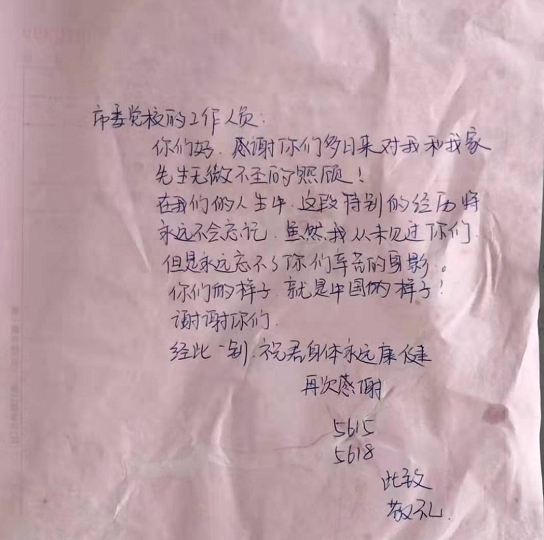 市委党校的工作人员:
你们好. 感谢你们多日来对我和我家
先生无微不至的照顾!
在我们的人生中, 这段特别的经历将
永远不会忘记. 虽然我从未见过你们
但是永远忘不了你们辛苦的身影。
你们的样子 就是中国的样子!
谢谢你们.
经此一别, 祝君身体永远康健
再次感谢
5615
5618
此致
敬礼.